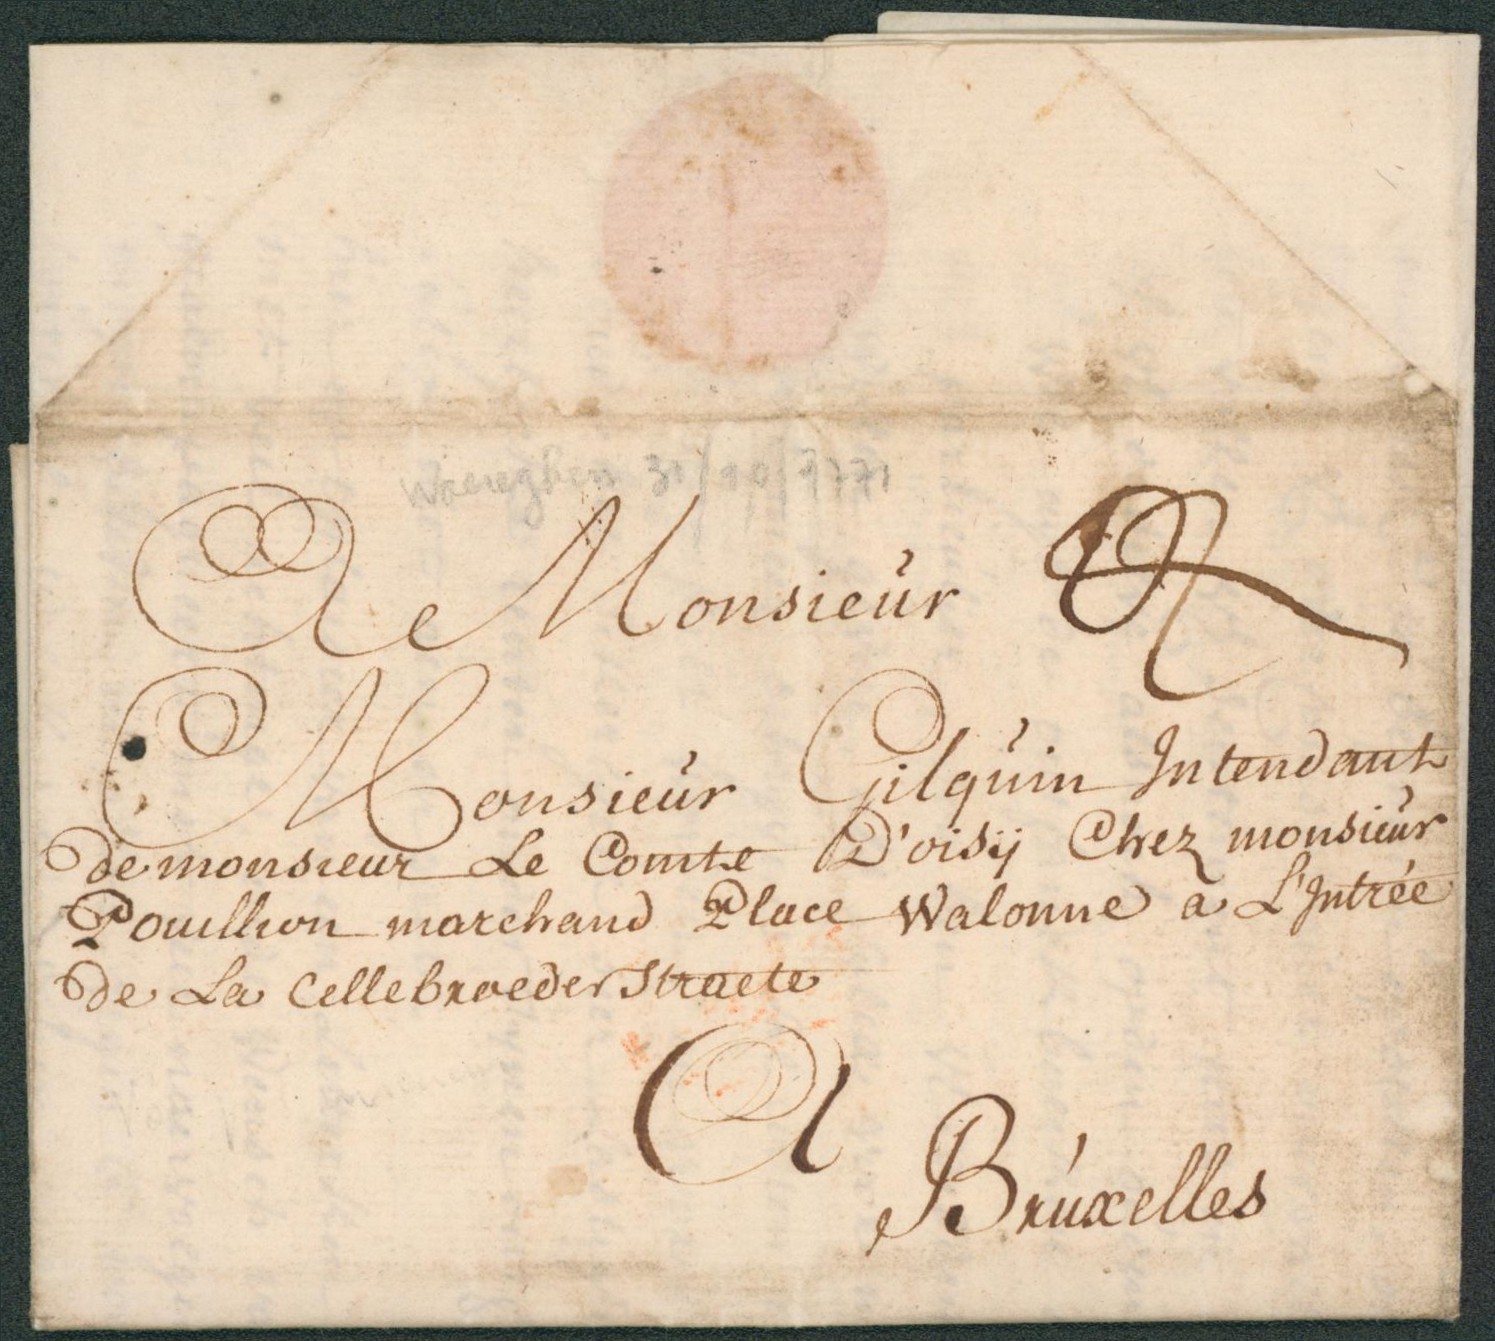 Waereghem 31/10/1771
A Monsieur
Monsieur Gilquin Intendant
de monsieur Le Comte D'oisÿ Chez monsieur
Pouillion marchand Place Walonne a L'Intrée
de La Cellebroeder Straete
A
Bruxelles